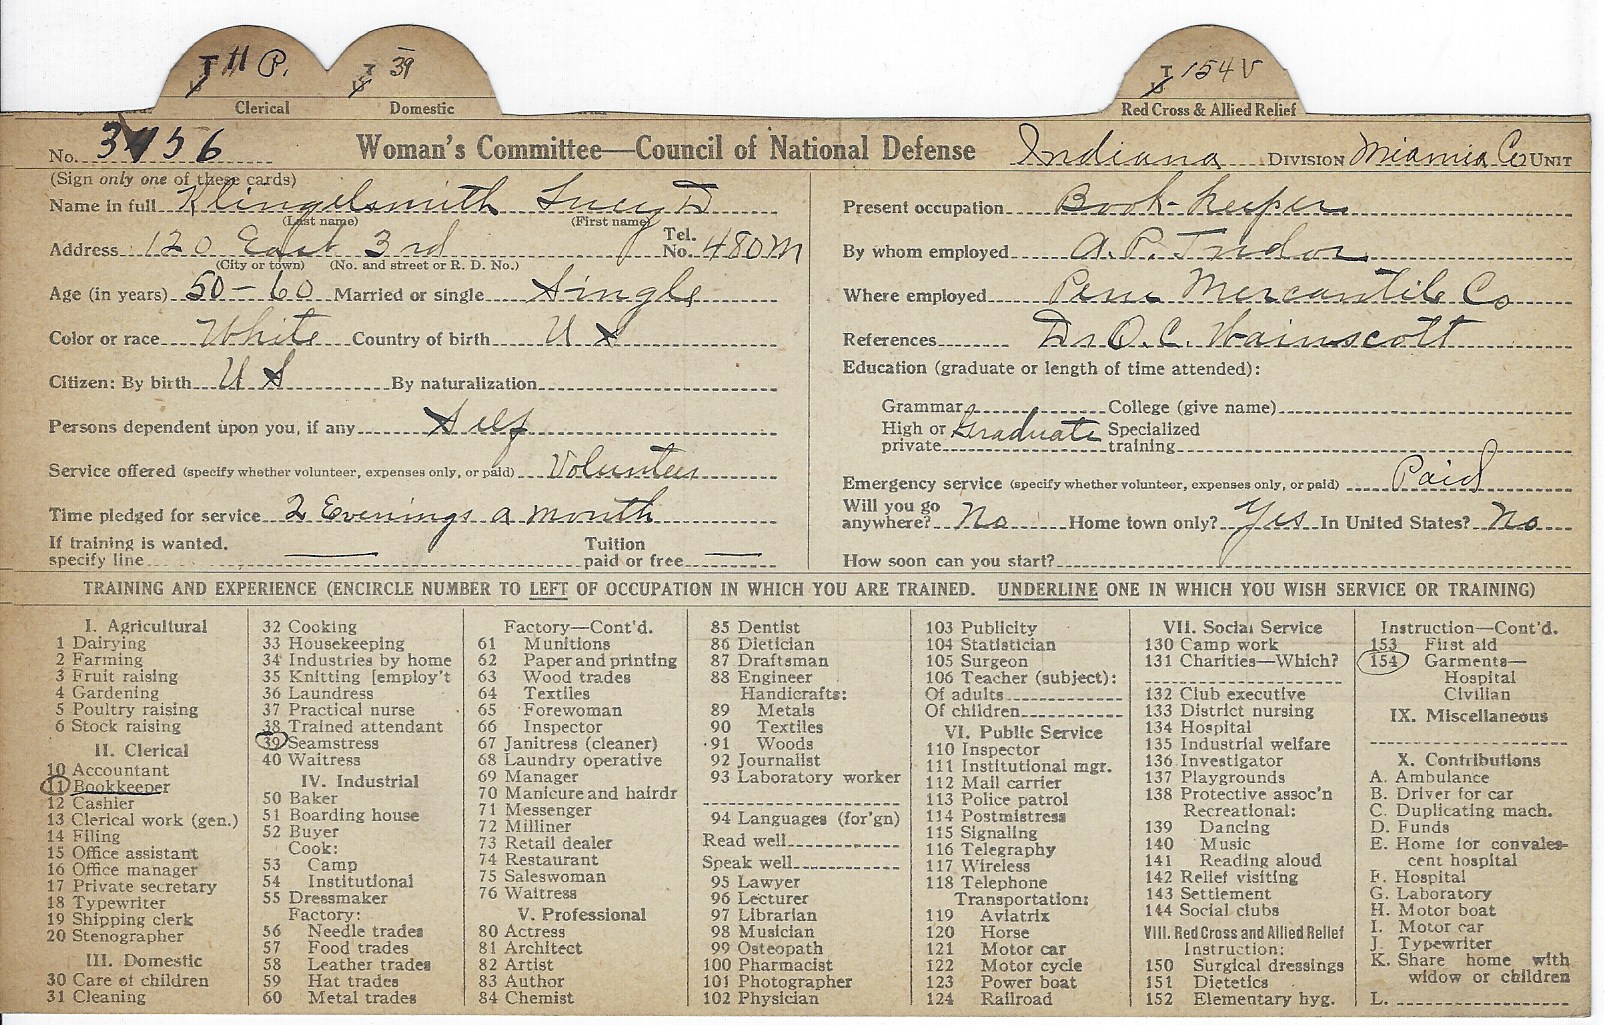 T 11 P. T 39 T 154 V
Clerical Domestic Red Cross & Allied Relief
No. 3456 Woman's Committee—Council of National Defense Indiana DIVISION Miamia Co UNIT
(Sign only one of these cards)
Name in full Klingelsmith Lucy D
(Last name) (First name)
Address 120 East 3rd Tel. No. 480M
(City or town) (No. and street or R. D. No.)
Age (in years) 50-60 Married or single Single
Color or race White Country of birth U S
Citizen: By birth U S By naturalization
Persons dependent upon you, if any Self
Service offered (specify whether volunteer, expenses only, or paid) Volunteer
Time pledged for service 2 Evenings a month
If training is wanted, specify line Tuition paid or free
Present occupation Book-keeper
By whom employed A. P. Tudor
Where employed Peru Mercantile Co
References Dr O. C. Wainscott
Education (graduate or length of time attended):
Grammar College (give name)
High or private Graduate Specialized training
Emergency service (specify whether volunteer, expenses only, or paid) Paid
Will you go anywhere? No Home town only? Yes In United States? No
How soon can you start?
TRAINING AND EXPERIENCE (ENCIRCLE NUMBER TO LEFT OF OCCUPATION IN WHICH YOU ARE TRAINED. UNDERLINE ONE IN WHICH YOU WISH SERVICE OR TRAINING)
I. Agricultural
1 Dairying
2 Farming
3 Fruit raising
4 Gardening
5 Poultry raising
6 Stock raising
II. Clerical
10 Accountant
11 Bookkeeper
12 Cashier
13 Clerical work (gen.)
14 Filing
15 Office assistant
16 Office manager
17 Private secretary
18 Typewriter
19 Shipping clerk
20 Stenographer
III. Domestic
30 Care of children
31 Cleaning
32 Cooking
33 Housekeeping
34 Industries by home
35 Knitting [employ't
36 Laundress
37 Practical nurse
38 Trained attendant
39 Seamstress
40 Waitress
IV. Industrial
50 Baker
51 Boarding house
52 Buyer
Cook:
53 Camp
54 Institutional
55 Dressmaker
Factory:
56 Needle trades
57 Food trades
58 Leather trades
59 Hat trades
60 Metal trades
Factory—Cont'd.
61 Munitions
62 Paper and printing
63 Wood trades
64 Textiles
65 Forewoman
66 Inspector
67 Janitress (cleaner)
68 Laundry operative
69 Manager
70 Manicure and hairdr
71 Messenger
72 Milliner
73 Retail dealer
74 Restaurant
75 Saleswoman
76 Waitress
V. Professional
80 Actress
81 Architect
82 Artist
83 Author
84 Chemist
85 Dentist
86 Dietician
87 Draftsman
88 Engineer
Handicrafts:
89 Metals
90 Textiles
91 Woods
92 Journalist
93 Laboratory worker
94 Languages (for'gn)
Read well
Speak well
95 Lawyer
96 Lecturer
97 Librarian
98 Musician
99 Osteopath
100 Pharmacist
101 Photographer
102 Physician
103 Publicity
104 Statistician
105 Surgeon
106 Teacher (subject):
Of adults
Of children
VI. Public Service
110 Inspector
111 Institutional mgr.
112 Mail carrier
113 Police patrol
114 Postmistress
115 Signaling
116 Telegraphy
117 Wireless
118 Telephone
Transportation:
119 Aviatrix
120 Horse
121 Motor car
122 Motor cycle
123 Power boat
124 Railroad
VII. Social Service
130 Camp work
131 Charities—Which?
132 Club executive
133 District nursing
134 Hospital
135 Industrial welfare
136 Investigator
137 Playgrounds
138 Protective assoc'n
Recreational:
139 Dancing
140 Music
141 Reading aloud
142 Relief visiting
143 Settlement
144 Social clubs
VIII. Red Cross and Allied Relief
Instruction:
150 Surgical dressings
151 Dietetics
152 Elementary hyg.
Instruction—Cont'd.
153 First aid
154 Garments—
Hospital
Civilian
IX. Miscellaneous
X. Contributions
A. Ambulance
B. Driver for car
C. Duplicating mach.
D. Funds
E. Home for convales-
cent hospital
F. Hospital
G. Laboratory
H. Motor boat
I. Motor car
J. Typewriter
K. Share home with
widow or children
L.